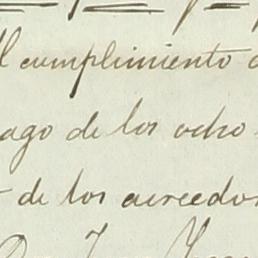 l cumplimiento
ago de los ocho
de los acreedo